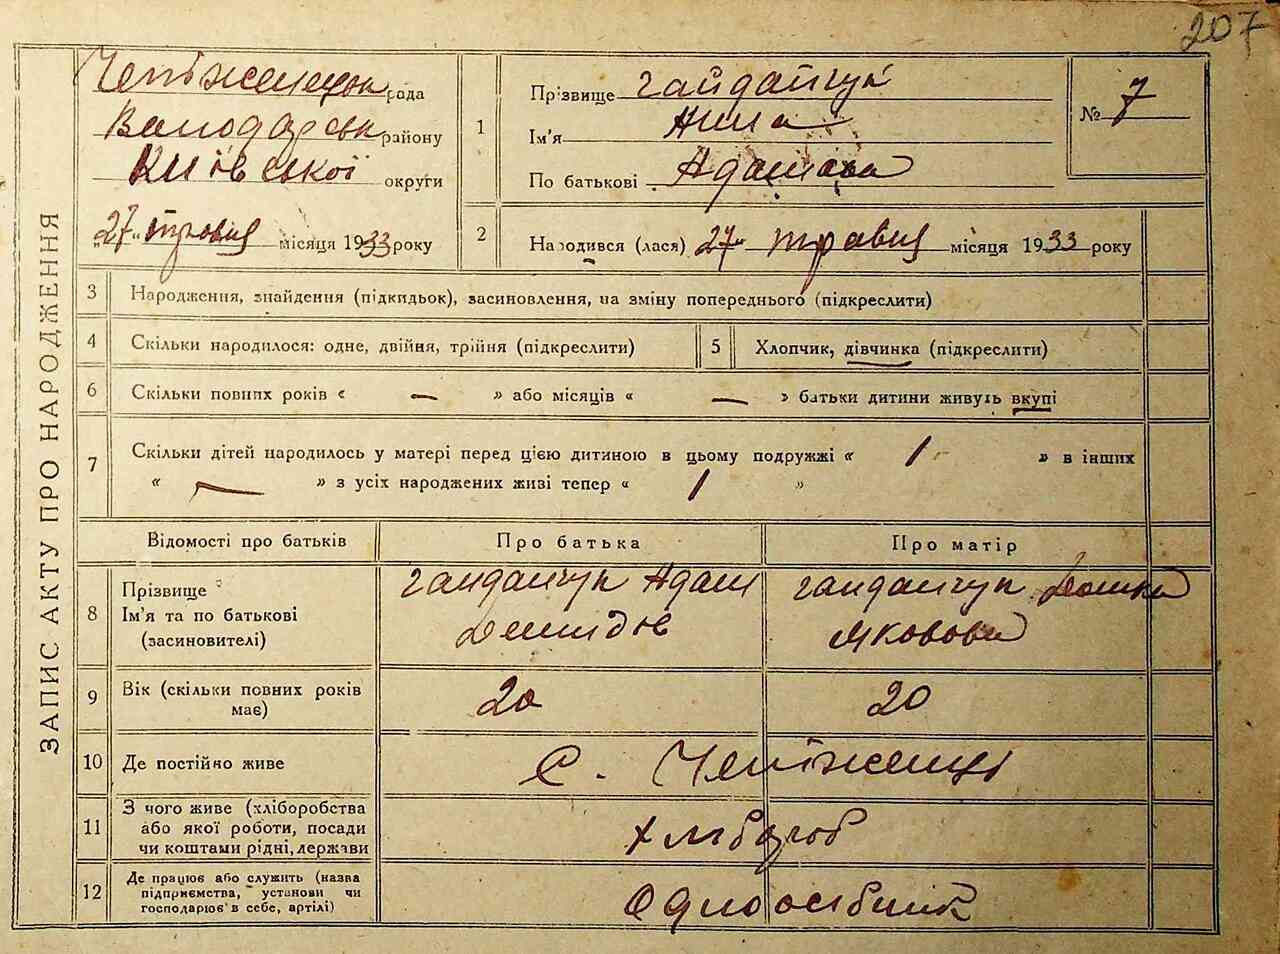 207
ЗАПИС АКТУ ПРО НАРОДЖЕННЯ
Чепіжинецьк рада
Володарськ району
Київської округи
„27“ травня місяця 1933 року
1 Прізвище Гайдайчук
Ім'я Нина
По батькові Адамова
№ 7
2 Народився (лася) 27 травня місяця 1933 року
3 Народження, знайдення (підкидьок), засиновлення, на зміну попереднього (підкреслити)
4 Скільки народилося: одне, двійня, трійня (підкреслити)
5 Хлопчик, дівчинка (підкреслити)
6 Скільки повних років « — » або місяців « — » батьки дитини живуть вкупі
7 Скільки дітей народилось у матері перед цією дитиною в цьому подружжі « 1 » в інших
« — » з усіх народжених живі тепер « 1 »
Відомості про батьків Про батька Про матір
8 Прізвище
Ім'я та по батькові
(засиновителі)
Гайдайчук Адам
Демидов
Гайдайчук Домка
Яковова
9 Вік (скільки повних років
має)
20 20
10 Де постійно живе с. Чепіжинці
11 З чого живе (хліборобства
або якої роботи, посади
чи коштами рідні, держави
хлібороб
12 Де працює або служить (назва
підприємства, установи чи
господарює в себе, артілі)
Одноосібник